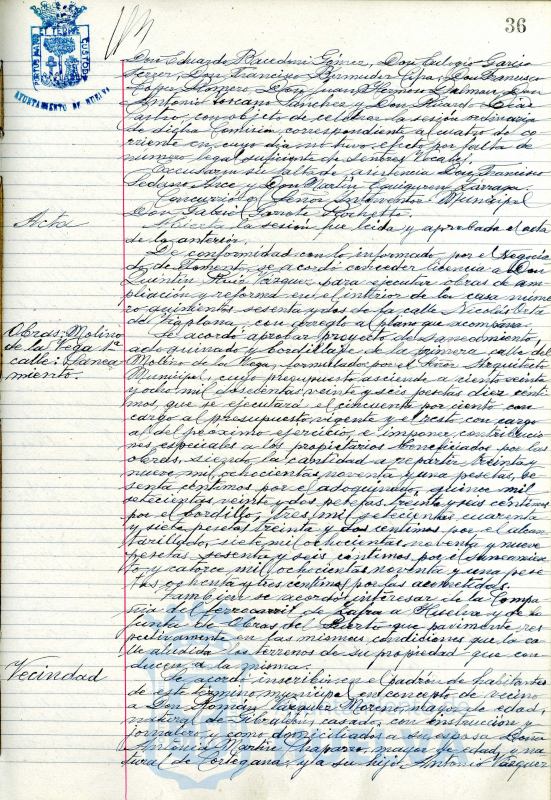 36
AYUNTAMIENTO DE HUELVA
Don Eduardo Gómez, Don Eulogio García
Don Francisco Bermúdez Don Francisco
López Romero Don Juan Hermoso Galmar, Don
Antonio Toscano Sánchez y Don Ricardo Díaz
Castro, con objeto de celebrar la sesión ordinaria
de dicha Comisión correspondiente al cuatro de co
rriente en cuyo día no tuvo efecto por falta de
número legal suficiente de señores Vocales.
Excusaron su falta de asistencia Don Francisco
Sedano Arce y Don Martín Eguiguren Larraza.
Concurrió el Señor Interventor Municipal
Don Gabriel
Acta
Abierta la sesión fue leída y aprobada el acta
de la anterior.
De conformidad con lo informado por el Negocia
do de Fomento, se acordó conceder licencia a Don
Quintín Ruiz Vázquez para ejecutar obras de am
pliación y reforma en el interior de la casa núme
ro quinientos sesenta y dos de la calle Nicolás Orta
del Viaplana, con arreglo al plano que acompaña.
Obras: Molino
de la Vega 1ª
calle: Sanea
miento.
Se acordó aprobar proyecto de saneamiento,
adoquinado y bordillaje de la primera calle del
Molino de la Vega, formulado por el Señor Arquitecto
Municipal, cuyo presupuesto asciende a ciento veinte
y ocho mil doscientas veinte y seis pesetas diez cénti
mos, que se ejecutará el cincuenta por ciento con
cargo al presupuesto vigente y el resto con cargo
al del próximo ejercicio, e imponer contribucio
nes especiales a los propietarios beneficiados por las
obras, siendo la cantidad a repartir treinta y
nueve mil ochocientas noventa y una pesetas, se
senta céntimos por el adoquinado, quince mil
setecientas veinte y dos pesetas treinta y seis céntimos
por el bordillo, tres mil setecientas cuarenta
y siete pesetas treinta y dos céntimos por el alcan
tarillado, siete mil ochocientas noventa y nueve
pesetas sesenta y seis céntimos por el saneamien
to y catorce mil ochocientas noventa y una pese
tas ochenta y tres céntimos por las acometidas.
También se acordó interesar de la Compa
ñía del ferrocarril de Zafra a Huelva y de la
Junta de Obras del Puerto que pavimente res
pectivamente en las mismas condiciones que la ca
lle aludida los terrenos de su propiedad que con
ducen a la misma.
Vecindad
Se acordó inscribir en el padrón de habitantes
de este término municipal en concepto de vecino
a Don Román Vázquez Moreno, mayor de edad,
natural de Gibraleón, casado, con instrucción y
jornalero y como domiciliados a su esposa Doña
Antonia Martín Chaparro, mayor de edad, y na
tural de Cortegana, y a su hijo Antonio Vázquez